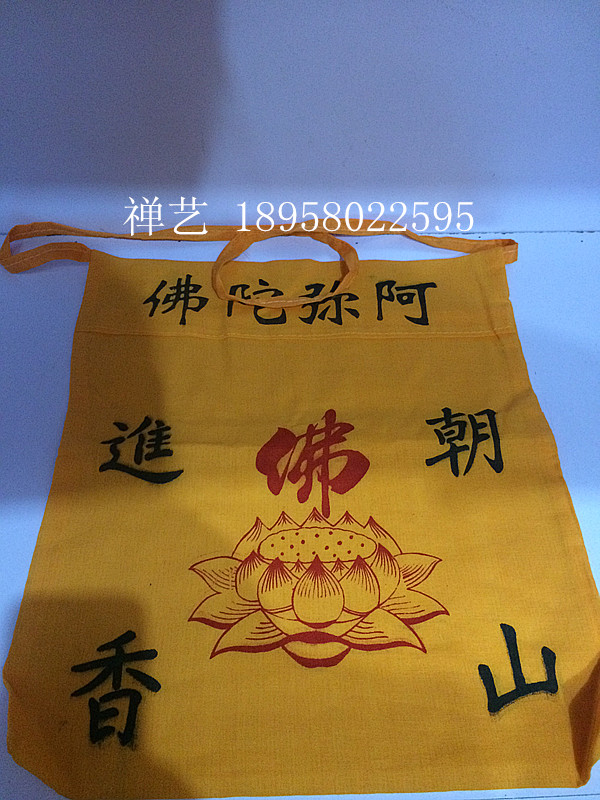 禅艺 18958022595
阿弥陀佛
朝山
佛
進香